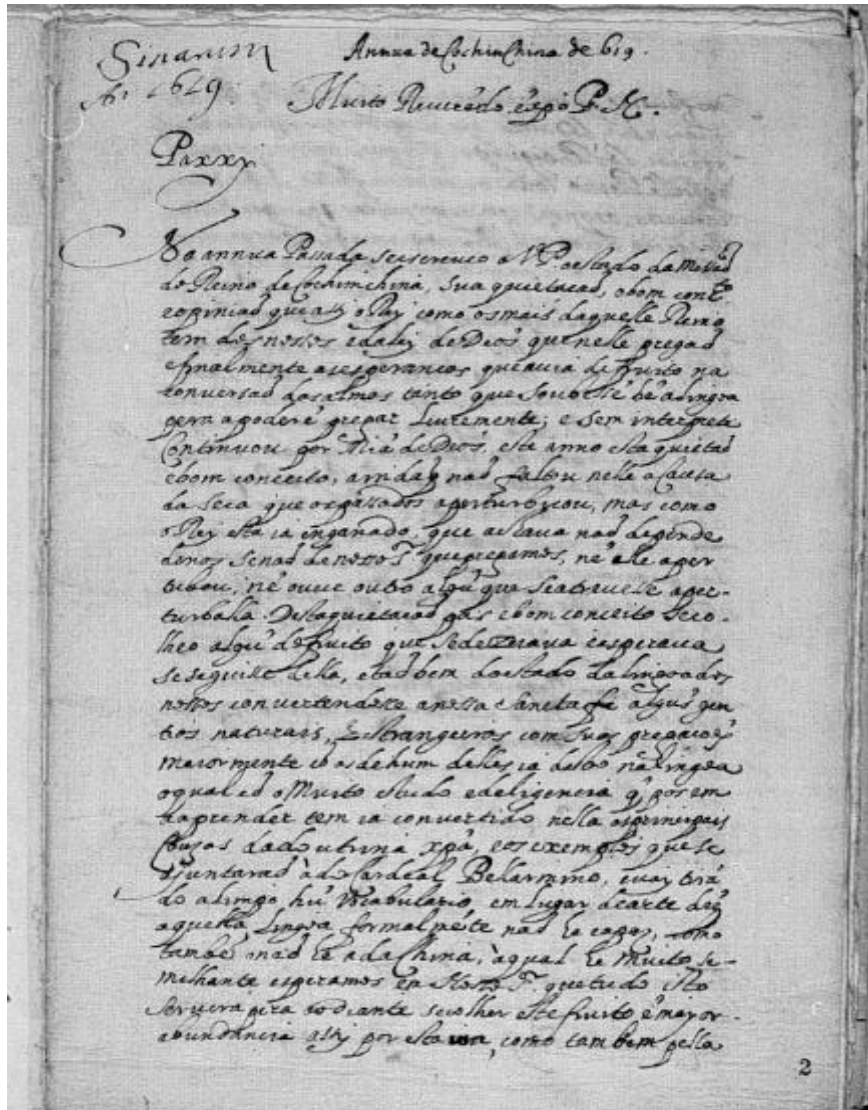 Sinarum
Annua de CochinChina de 619.
Aº 1619
Muito Reverēdo ē xpō P. N.
Pax xpi
Na annua Passada se escreveo a V. P. o estado da
do Reino de Cochimchina, sua quietacaõ, o bom
e opiniaõ que assi o Rey como os mais daquelle Reino
tem dos nossos e da lej de Deos que nelle pregaõ
e finalmente as esperancas que avia de fruito na
conversaõ das almas tanto que soubessē bē a lingoa
pera a poderē pregar livremente, e sem interprete
Continuou por de Deos, este anno esta quietaõ
e bom conceito, ainda naõ faltou nelle a causa
da seca que os passados a perturbou, mas como
o Rey esta ia enganado, que a chuva naõ depende
de nos senaõ de nosso que pregamos, nē elle a per
turbou, nē ouve outro algū que se atrevesse a per-
turballa. Desta quietacaõ e bom conceito se co-
lheo algū do fruito que se dezeiava e esperava
se seguisse della, e taõ bem do estado da lingoa dos
nossos convertendosse a nossa Sancta fe algūs gen
tios naturais, Estrangeiros com suas pregacoēs
maiormente cō as de hum delles ia na lingoa
o qual cō o Muito estudo e deligencia q̄ pos em
aprender tem ia convertido nella as principais
Cousas da doutrina xpã, e os exemplos que se
ajuntaraõ à do Cardeal Bellarmino, e vai tirā
do a limpo hū Vocabulario em lugar de arte
aquella Lingoa formalmēte naõ he capaz, como
tambē naõ he a da China, à qual he Muito se-
melhante esperamos em Nosso Sr. que tudo isto
servira pera ao diante se colher este fruito ē mayor
abundancia assi por esta via, como tambem pella
2